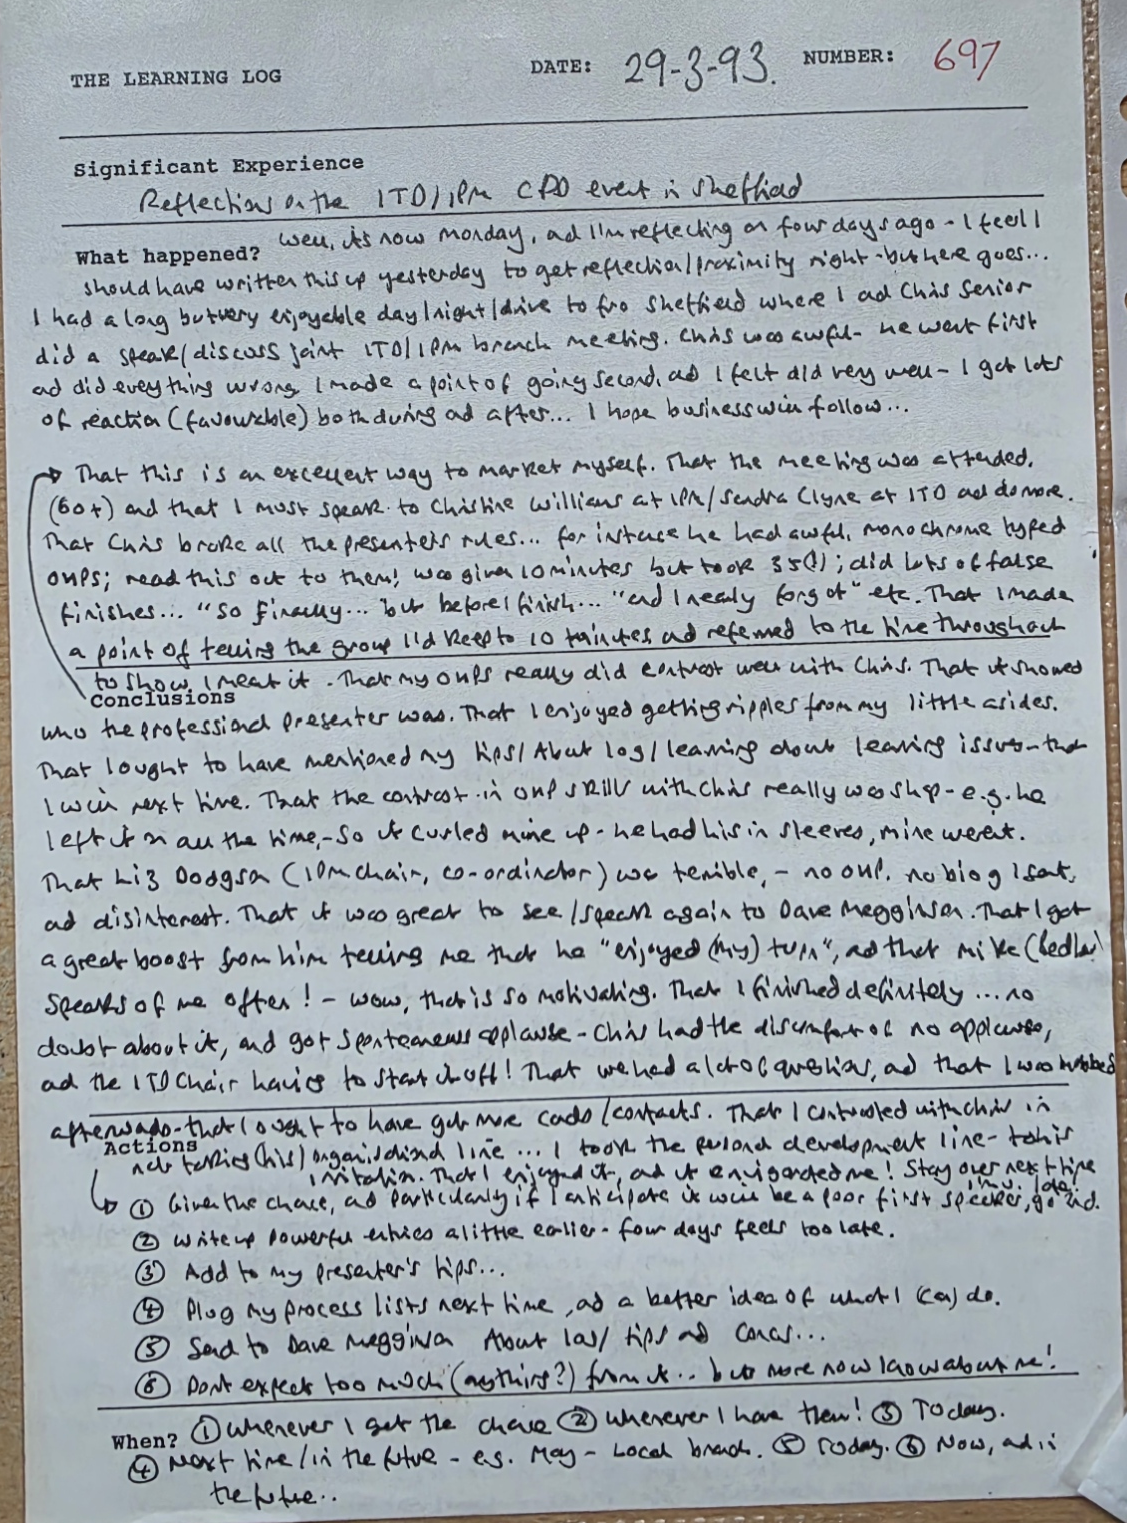 THE LEARNING LOG DATE: 29-3-93. NUMBER: 697
Significant Experience
Reflections on the ITD/IPM CPD event in Sheffield
What happened? Well, it's now Monday, and I'm reflecting on four days ago - I feel I
should have written this up yesterday to get reflection/proximity right - but here goes...
I had a long but very enjoyable day/night/drive to fro Sheffield where I and Chris Senior
did a speak/discuss joint ITD/IPM branch meeting. Chris was awful - he went first
and did everything wrong. I made a point of going second, and I felt did very well - I got lots
of reaction (favourable) both during and after... I hope business will follow...
That this is an excellent way to market myself. That the meeting was attended.
(60+) and that I must speak to Christine Williams at IPM/Sandra Clyne at ITD and do more.
That Chris broke all the presenter's rules... for instance he had awful, monochrome typed
OHPs; read this out to them! was given 10 minutes but took 35(!); did lots of false
finishes... "So finally... but before I finish... "and I nearly forgot" etc. That I made
a point of telling the group I'd keep to 10 minutes and referred to the time throughout
to show I meant it. That my OHPs really did contrast well with Chris. That it showed
Conclusions
who the professional presenter was. That I enjoyed getting ripples from my little asides.
That I ought to have mentioned my tips/About log/learning about learning issues - that
I will next time. That the contrast in OHP skills with Chris really was sharp - e.g. he
left it on all the time, - so it curled mine up - he had his in sleeves, mine weren't.
That Liz Dodgson (IPM chair, co-ordinator) was terrible, - no OHP, no biog I sent,
and disinterest. That it was great to see/speak again to Dave Megginson. That I got
a great boost from him telling me that he "enjoyed (my) turn", and that Mike (Pedler)
speaks of me often! - wow, that is so motivating. That I finished definitely... no
doubt about it, and got spontaneous applause - Chris had the discomfort of no applause,
and the ITD Chair having to start it off! That we had a lot of questions, and that I was mobbed
afterwards - that I ought to have got more cards/contacts. That I contrasted with Chris in
Actions
not taking (his) organisational line... I took the personal development line - to his
irritation. That I enjoyed it, and it envigorated me! Stay over next time
① Given the chance, and particularly if I anticipate it will be a poor first speaker, go 2nd.
② Write up powerful entries a little earlier - four days feels too late.
③ Add to my presenter's tips...
④ Plug my process lists next time, and a better idea of what I (can) do.
⑤ Send to Dave Megginson About log/ tips and concs...
⑥ Don't expect too much (anything?) from it... but more now know about me!
When? ① Whenever I get the chance ② Whenever I have them! ③ Today.
④ Next time/in the future - e.g. May - Local branch. ⑤ Today. ⑥ Now, and in
the future..